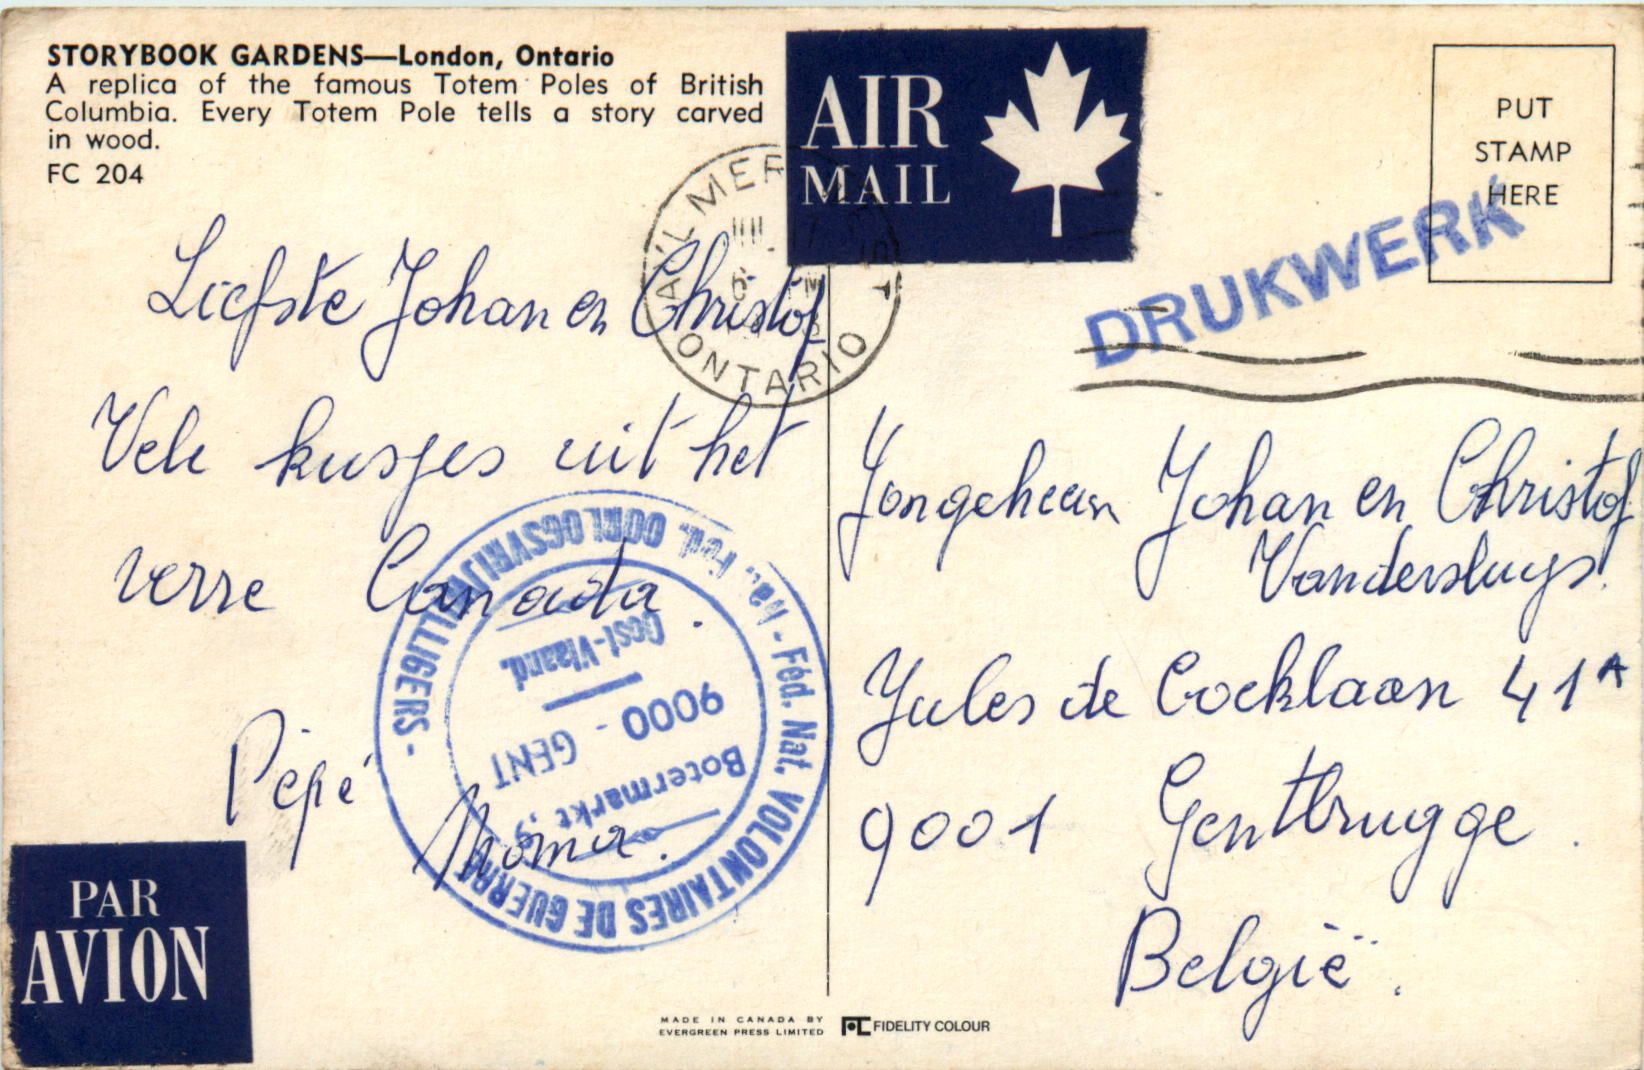 STORYBOOK GARDENS—London, Ontario
A replica of the famous Totem Poles of British
Columbia. Every Totem Pole tells a story carved
in wood.
FC 204
AIR
MAIL
PUT
STAMP
HERE
DRUKWERK
ONTARIO
Liefste Johan en Christof
Vele kusjes uit het
verre Canada.
Pépé
Moma.
Nat. Féd. OORLOGSVRIJWILLIGERS -
Féd. Nat. VOLONTAIRES DE GUERRE
Botermarkt, 9
9000 - GENT
Oost-Vlaand.
Jongeheren Johan en Christof
Vandersluys.
Jules de Cocklaan 41A
9001 Gentbrugge.
België.
PAR
AVION
MADE IN CANADA BY
EVERGREEN PRESS LIMITED
FC FIDELITY COLOUR